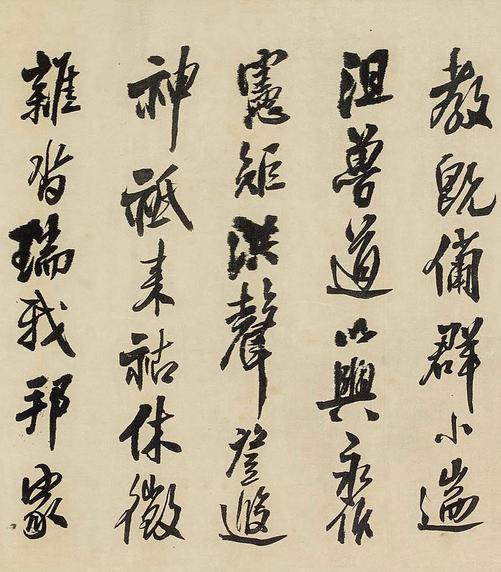 教既備群小遄
沮善道以興永作
憲矩洪聲登遐
神祇来祜休徵
雜沓瑞我邦家